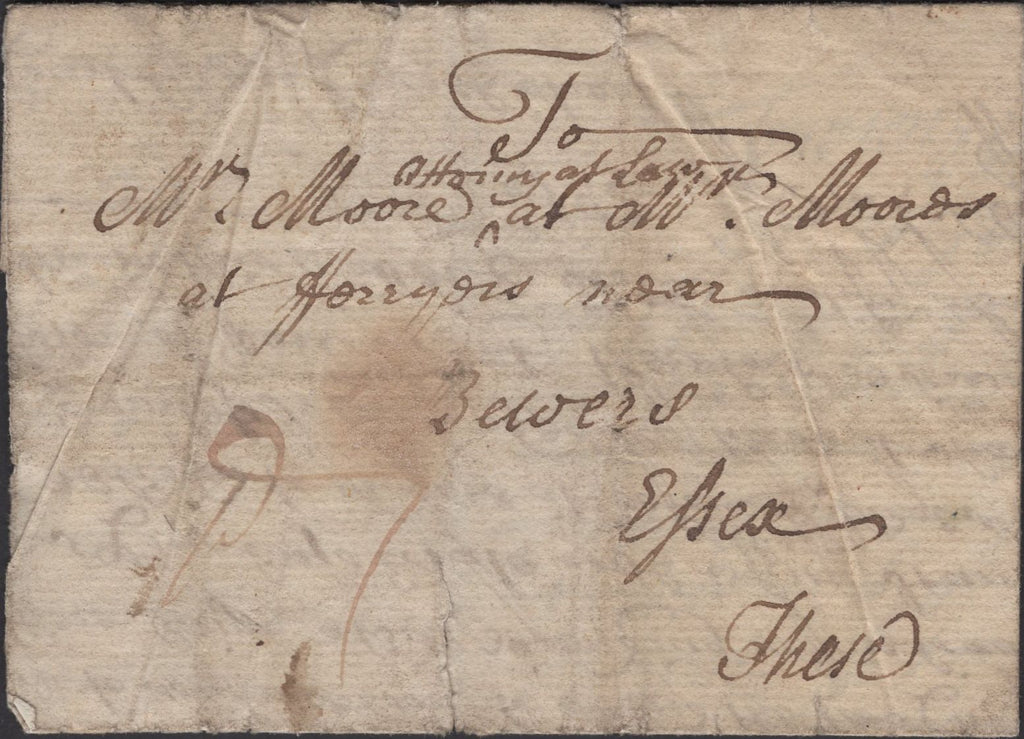 To
Attorney at Law
Mr. Moore at Mr. Moores
at Ferryers near
Bewers
Essex
These